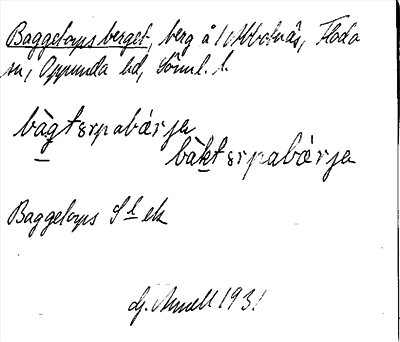 Baggetorps berget, berg å 1 Abbotnäs, Floda
sn, Oppunda hd, Sörml. l.
bàgtɛrpabǽrja
bàktɛrpabǽrja
Baggetorps S l ek
Gj. Annell 1931